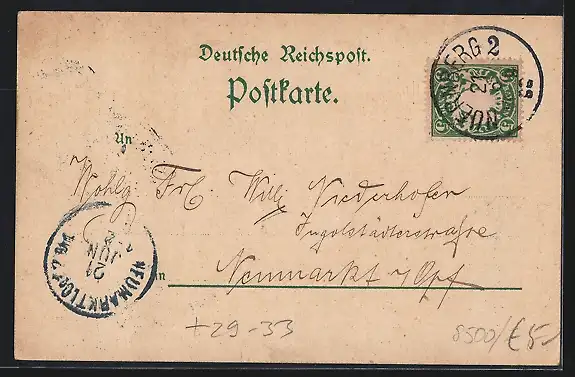 Deutsche Reichspost.
Postkarte.
NUERNBERG 2
5 5
An
Wohlg. Frl. Willy Niederhofer
Ingolstädterstraße
in Neumarkt i/Opf
NEUMARKT
21
JUN
+29-33
8500/€5-